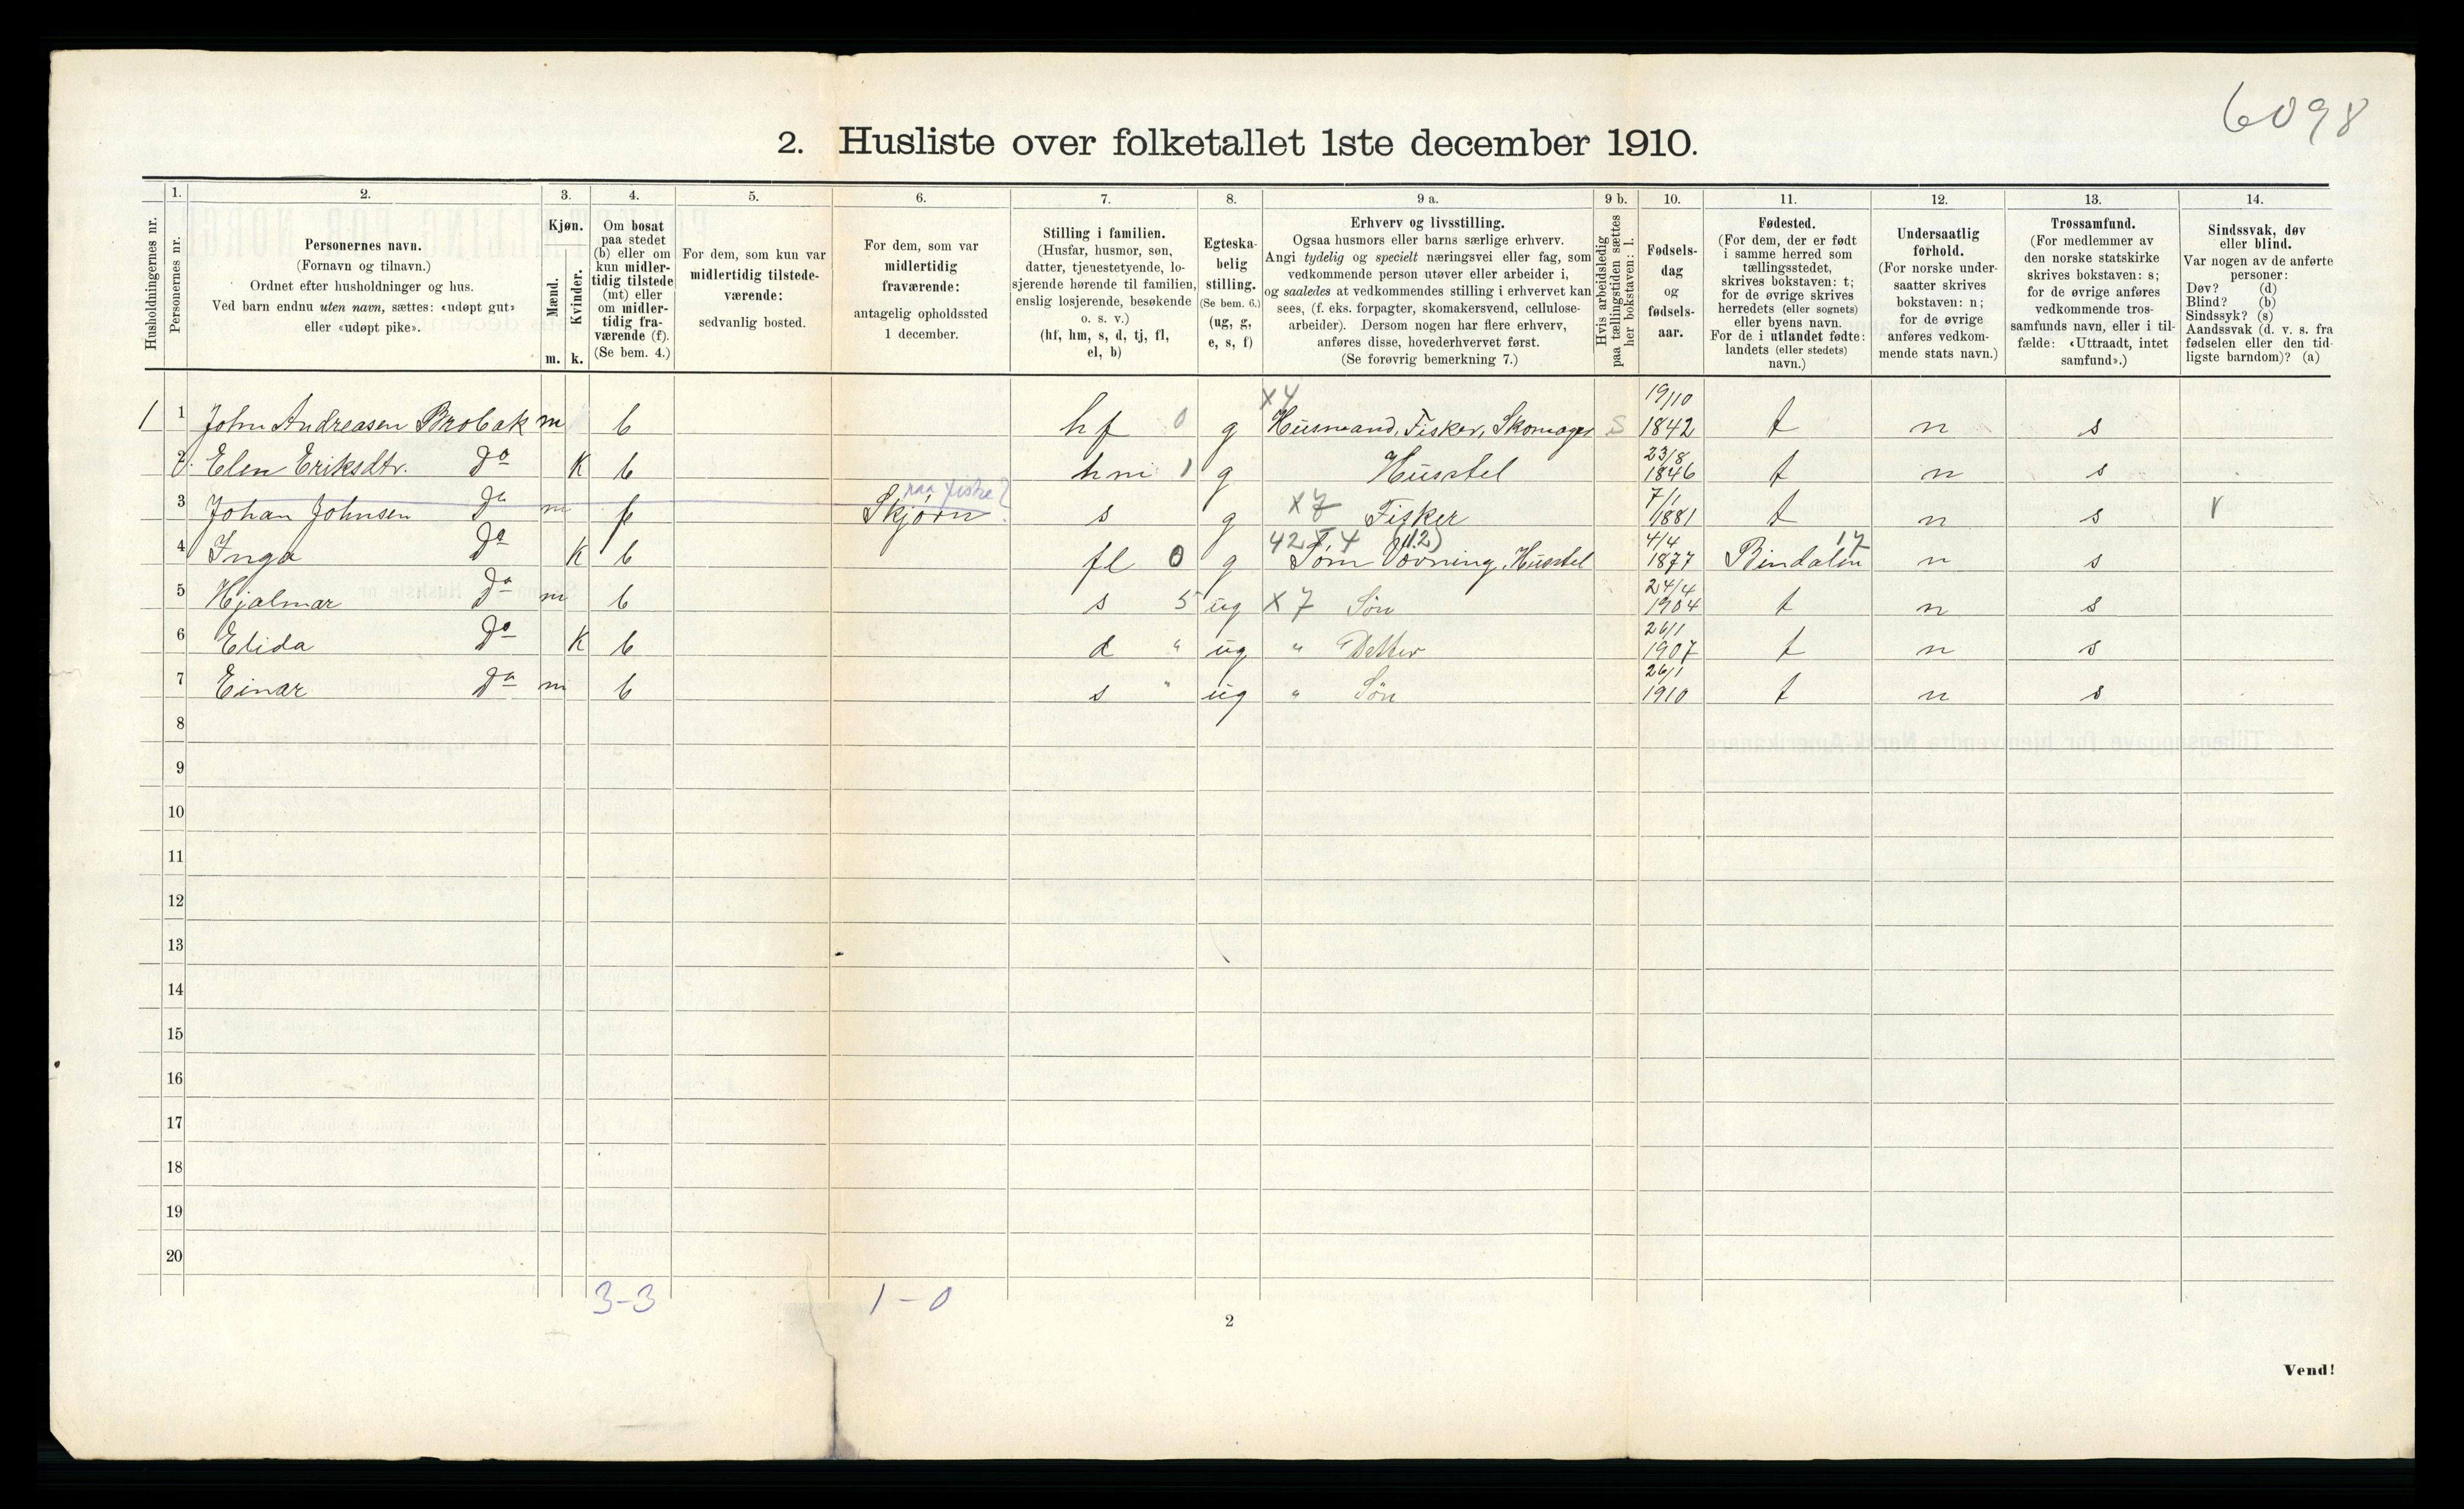 6098
2. Husliste over folketallet 1ste december 1910.
Husholdningernes nr.
1.
Personernes nr.
2.
Personernes navn.
(Fornavn og tilnavn.)
Ordnet efter husholdninger og hus.
Ved barn endnu uten navn, sættes: «udøpt gut»
eller «udøpt pike».
3.
Kjøn.
Mænd.
m.
Kvinder.
k.
4.
Om bosat
paa stedet
(b) eller om
kun midler-
tidig tilstede
(mt) eller
om midler-
tidig fra-
værende (f).
(Se bem. 4.)
5.
For dem, som kun var
midlertidig tilstede-
værende:
sedvanlig bosted.
6.
For dem, som var
midlertidig
fraværende:
antagelig opholdssted
1 december.
7.
Stilling i familien.
(Husfar, husmor, søn,
datter, tjenestetyende, lo-
sjerende hørende til familien,
enslig losjerende, besøkende
o. s. v.)
(hf, hm, s, d, tj, fl,
el, b)
8.
Egteska-
belig
stilling.
(Se bem. 6.)
(ug, g,
e, s, f)
9 a.
Erhverv og livsstilling.
Ogsaa husmors eller barns særlige erhverv.
Angi tydelig og specielt næringsvei eller fag, som
vedkommende person utøver eller arbeider i,
og saaledes at vedkommendes stilling i erhvervet kan
sees, (f. eks. forpagter, skomakersvend, cellulose-
arbeider). Dersom nogen har flere erhverv,
anføres disse, hovederhvervet først.
(Se forøvrig bemerkning 7.)
9 b.
Hvis arbeidsledig
paa tællingstiden sættes
her bokstaven: l.
10.
Fødsels-
dag
og
fødsels-
aar.
11.
Fødested.
(For dem, der er født
i samme herred som
tællingsstedet,
skrives bokstaven: t;
for de øvrige skrives
herredets (eller sognets)
eller byens navn.
For de i utlandet fødte:
landets (eller stedets)
navn.)
12.
Undersaatlig
forhold.
(For norske under-
saatter skrives
bokstaven: n;
for de øvrige
anføres vedkom-
mende stats navn.)
13.
Trossamfund.
(For medlemmer av
den norske statskirke
skrives bokstaven: s;
for de øvrige anføres
vedkommende tros-
samfunds navn, eller i til-
fælde: «Uttraadt, intet
samfund».)
14.
Sindssvak, døv
eller blind.
Var nogen av de anførte
personer:
Døv? (d)
Blind? (b)
Sindssyk? (s)
Aandssvak (d. v. s. fra
fødselen eller den tid-
ligste barndom)? (a)
1 1 John Andreasen Brobak m b hf 0 g x4 Husmand, Fisker, Skomager S 19/10 1842 t n s
2 Elen Eriksdtr. Do K b hm 1 g Husstel 23/8 1846 t n s
3 Johan Johnsen Do m f Skjørn paa fiske? s g x7 Fisker 7/1 1881 t n s
4 Inga Do K b fl 0 g 42 Søm Vævning, Husstel 4/4 1877 Bindalen 17 n s
5 Hjalmar Do m b s 5 ug x7 Søn 24/4 1904 t n s
6 Elida Do K b d " ug " Detter 26/1 1907 t n s
7 Einar Do m b s " ug " Søn 26/1 1910 t n s
8
9
10
11
12
13
14
15
16
17
18
19
20
3-3 1-0
2
Vend!